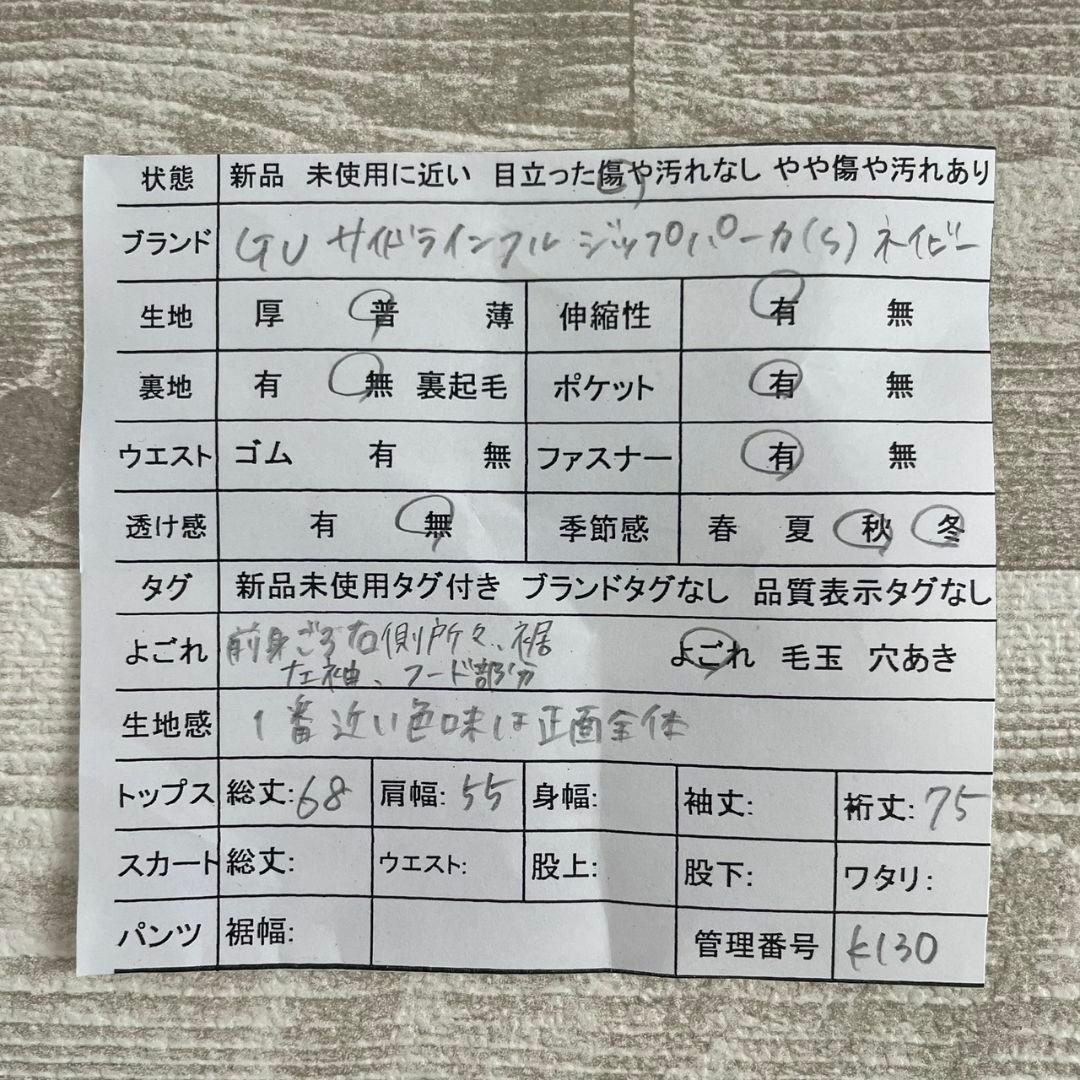 状態 新品 未使用に近い 目立った傷や汚れなし やや傷や汚れあり
ブランド GU サイドラインフルジップパーカ(S) ネイビー
生地 厚 普 薄 伸縮性 有 無
裏地 有 無 裏起毛 ポケット 有 無
ウエスト ゴム 有 無 ファスナー 有 無
透け感 有 無 季節感 春 夏 秋 冬
タグ 新品未使用タグ付き ブランドタグなし 品質表示タグなし
よごれ 前身ごろ右側所々、裾 よごれ 毛玉 穴あき
左袖、フード部分
生地感 1番近い色味は正面全体
トップス 総丈:68 肩幅:55 身幅: 袖丈: 裄丈:75
スカート 総丈: ウエスト: 股上: 股下: ワタリ:
パンツ 裾幅: 管理番号 K130